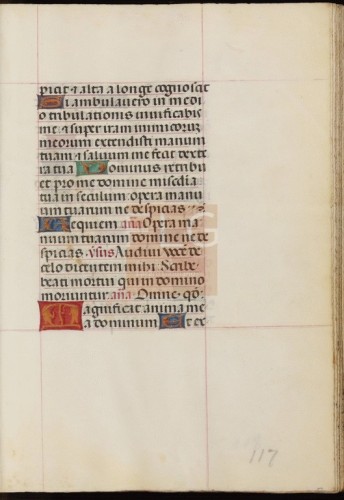 picit & alta a longe cognoscit
Si ambulavero in medi
o tribulationis vivificabis
me & super iram inimicorum
meorum extendisti manum
tuam & salvum me fecit dexte
ra tua Dominus retribu
et pro me domine miseri&cordia
tua in seculum opera manu
um tuarum ne despicias
Requiem aña Opera ma
nuum tuarum domine ne de
spicias vsus Audivi vocē de
celo dicentem mihi Scribe
beati mortui qui in domino
moriuntur aña Omne qō
Magnificat anima me
a dominum Et ex
117